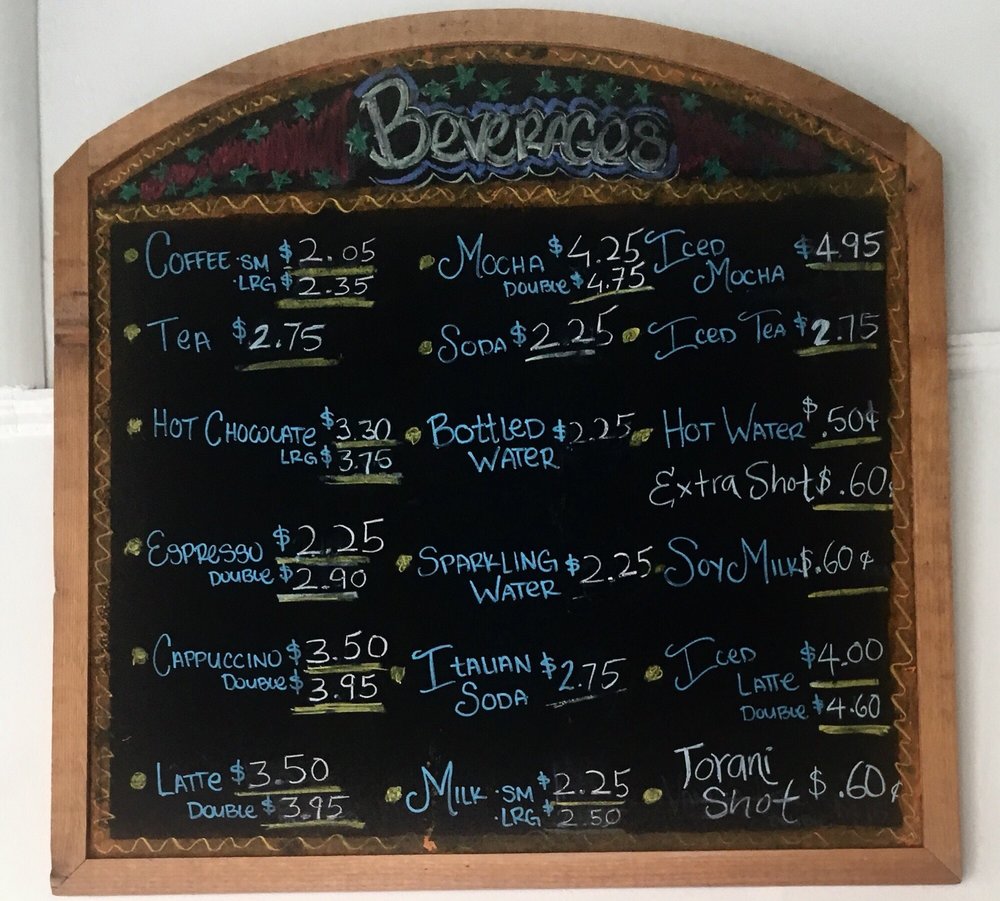 Beverages
Coffee ·SM $2.05
·LRG $2.35
Tea $2.75
Hot Chocolate $3.30
LRG $3.75
Espresso $2.25
Double $2.90
Cappuccino $3.50
Double $3.95
Latte $3.50
Double $3.95
Mocha $4.25
Double $4.75
Soda $2.25
Bottled $2.25
Water
Sparkling $2.25
Water
Italian $2.75
Soda
Milk ·SM $2.25
·LRG $2.50
Iced $4.95
Mocha
Iced Tea $2.75
Hot Water $.50¢
Extra Shot $.60¢
Soy Milk $.60¢
Iced $4.00
Latte
Double $4.60
Torani $.60¢
Shot